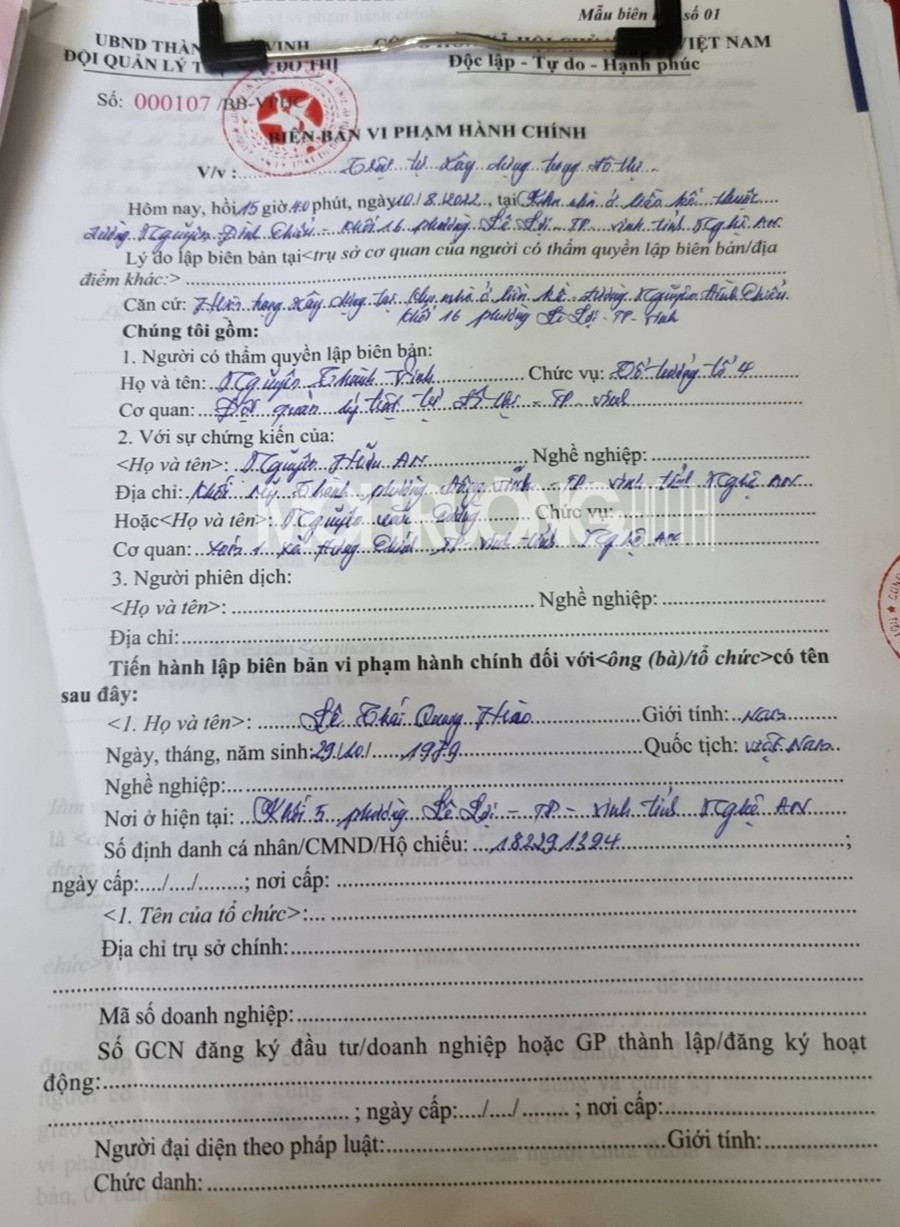 Mẫu biên số 01
UBND THÀN VINH VIỆT NAM
ĐỘI QUẢN LÝ T ĐÔ THỊ Độc lập - Tự do - Hạnh phúc
Số: 000107 /BB-VPHC
BIÊN BẢN VI PHẠM HÀNH CHÍNH
V/v : Trật tự xây dựng trong đô thị
Hôm nay, hồi 15 giờ 40 phút, ngày 10/8/2022, tại Khu nhà ở liền kề thuộc
đường Nguyễn Đình Chiểu - Khối 16 phường Lê Lợi - TP Vinh tỉnh Nghệ AN
Lý do lập biên bản tại<trụ sở cơ quan của người có thẩm quyền lập biên bản/địa
điểm khác:>
Căn cứ: Hiện trạng xây dựng tại khu nhà ở liền kề - đường Nguyễn Đình Chiểu
Khối 16 phường Lê Lợi - TP - Vinh
Chúng tôi gồm:
1. Người có thẩm quyền lập biên bản:
Họ và tên: Nguyễn Thành Vinh Chức vụ: Tổ trưởng tổ 4
Cơ quan: Đội quản lý trật tự đô thị - TP Vinh
2. Với sự chứng kiến của:
<Họ và tên>: Nguyễn Hữu AN Nghề nghiệp:
Địa chỉ: Khối phường - TP - Vinh tỉnh Nghệ AN
Hoặc<Họ và tên>: Nguyễn Văn Chức vụ:
Cơ quan: xóm 1 xã Hưng TP Vinh tỉnh Nghệ AN
3. Người phiên dịch:
<Họ và tên>: Nghề nghiệp:
Địa chỉ:
Tiến hành lập biên bản vi phạm hành chính đối với<ông (bà)/tổ chức>có tên
sau đây:
<1. Họ và tên>: Lê Thái Quang Hào Giới tính: Nam
Ngày, tháng, năm sinh: 29/10/ 1979 Quốc tịch: việt Nam
Nghề nghiệp:
Nơi ở hiện tại: Khối 5 phường Lê Lợi - TP - Vinh tỉnh Nghệ AN
Số định danh cá nhân/CMND/Hộ chiếu: 182291394 ;
ngày cấp:..../..../........; nơi cấp:
<1. Tên của tổ chức>:
Địa chỉ trụ sở chính:
Mã số doanh nghiệp:
Số GCN đăng ký đầu tư/doanh nghiệp hoặc GP thành lập/đăng ký hoạt
động:
; ngày cấp:..../..../........ ; nơi cấp:
Người đại diện theo pháp luật: Giới tính:
Chức danh: